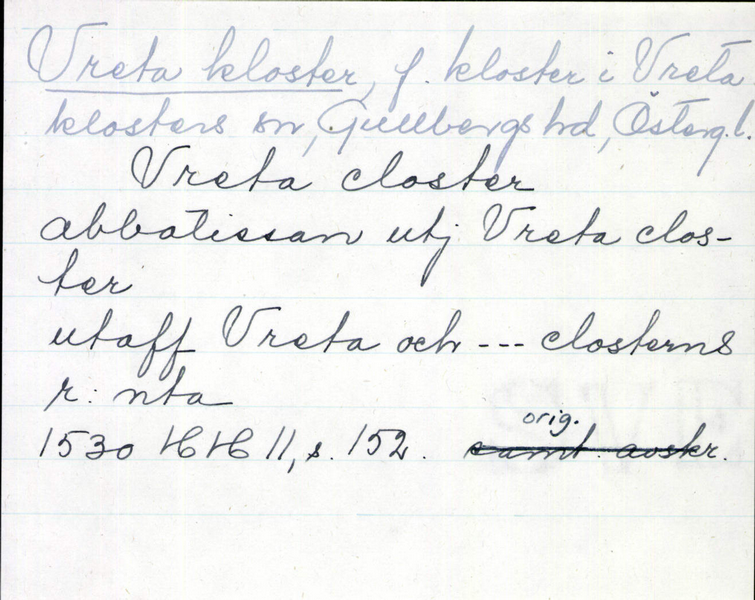 Vreta kloster, f. kloster i Vreta
klosters sn, Gullbergs hd, Österg.l.
Vreta closter
abbatissan utj Vreta clos-
ter
utaff Vreta och --- closterns
r: nta
orig.
1530 HH 11, s. 152. samt. avskr.